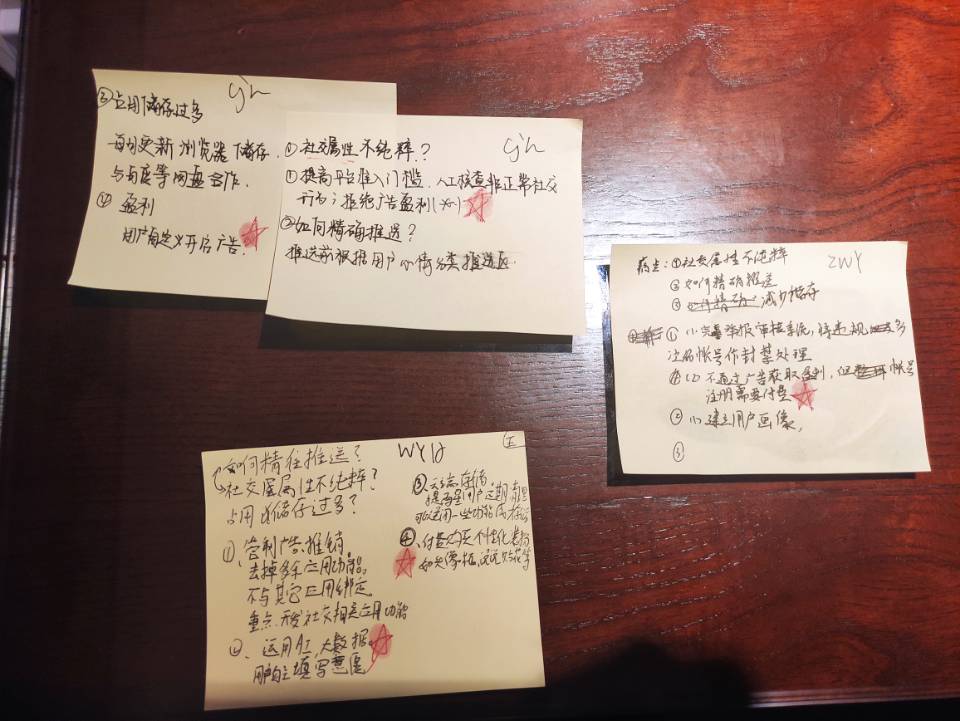 ③占用储存过多
与百度等网盘合作.
④ 盈利
用户自定义开启广告.
cyh
①社交属性不纯粹?
①提高平台准入门槛.人工核查非正常社交
行为;拒绝广告盈利
②如何精确推送?
推送前根据用户心情分类推送
ZWY
痛点:①社交属性不纯粹
②如何精确推送
③ 减少储存
① 完善举报审核系统,将违规多
次的帐号作封禁处理
(2) 不通过广告获取盈利,但帐号
注册需要付费
② (1)建立用户画像,
③
WYH
如何精准推送?
社交属性不纯粹?
占用储存过多?
①、管制广告、推销,
去掉多余应用功能。
不与其它应用绑定
重点开发社交相关应用功能
②、运用AI,大数据。
用户自主填写意愿
③、云端存储,
④、付费购买个性化装扮
如头像框,说说